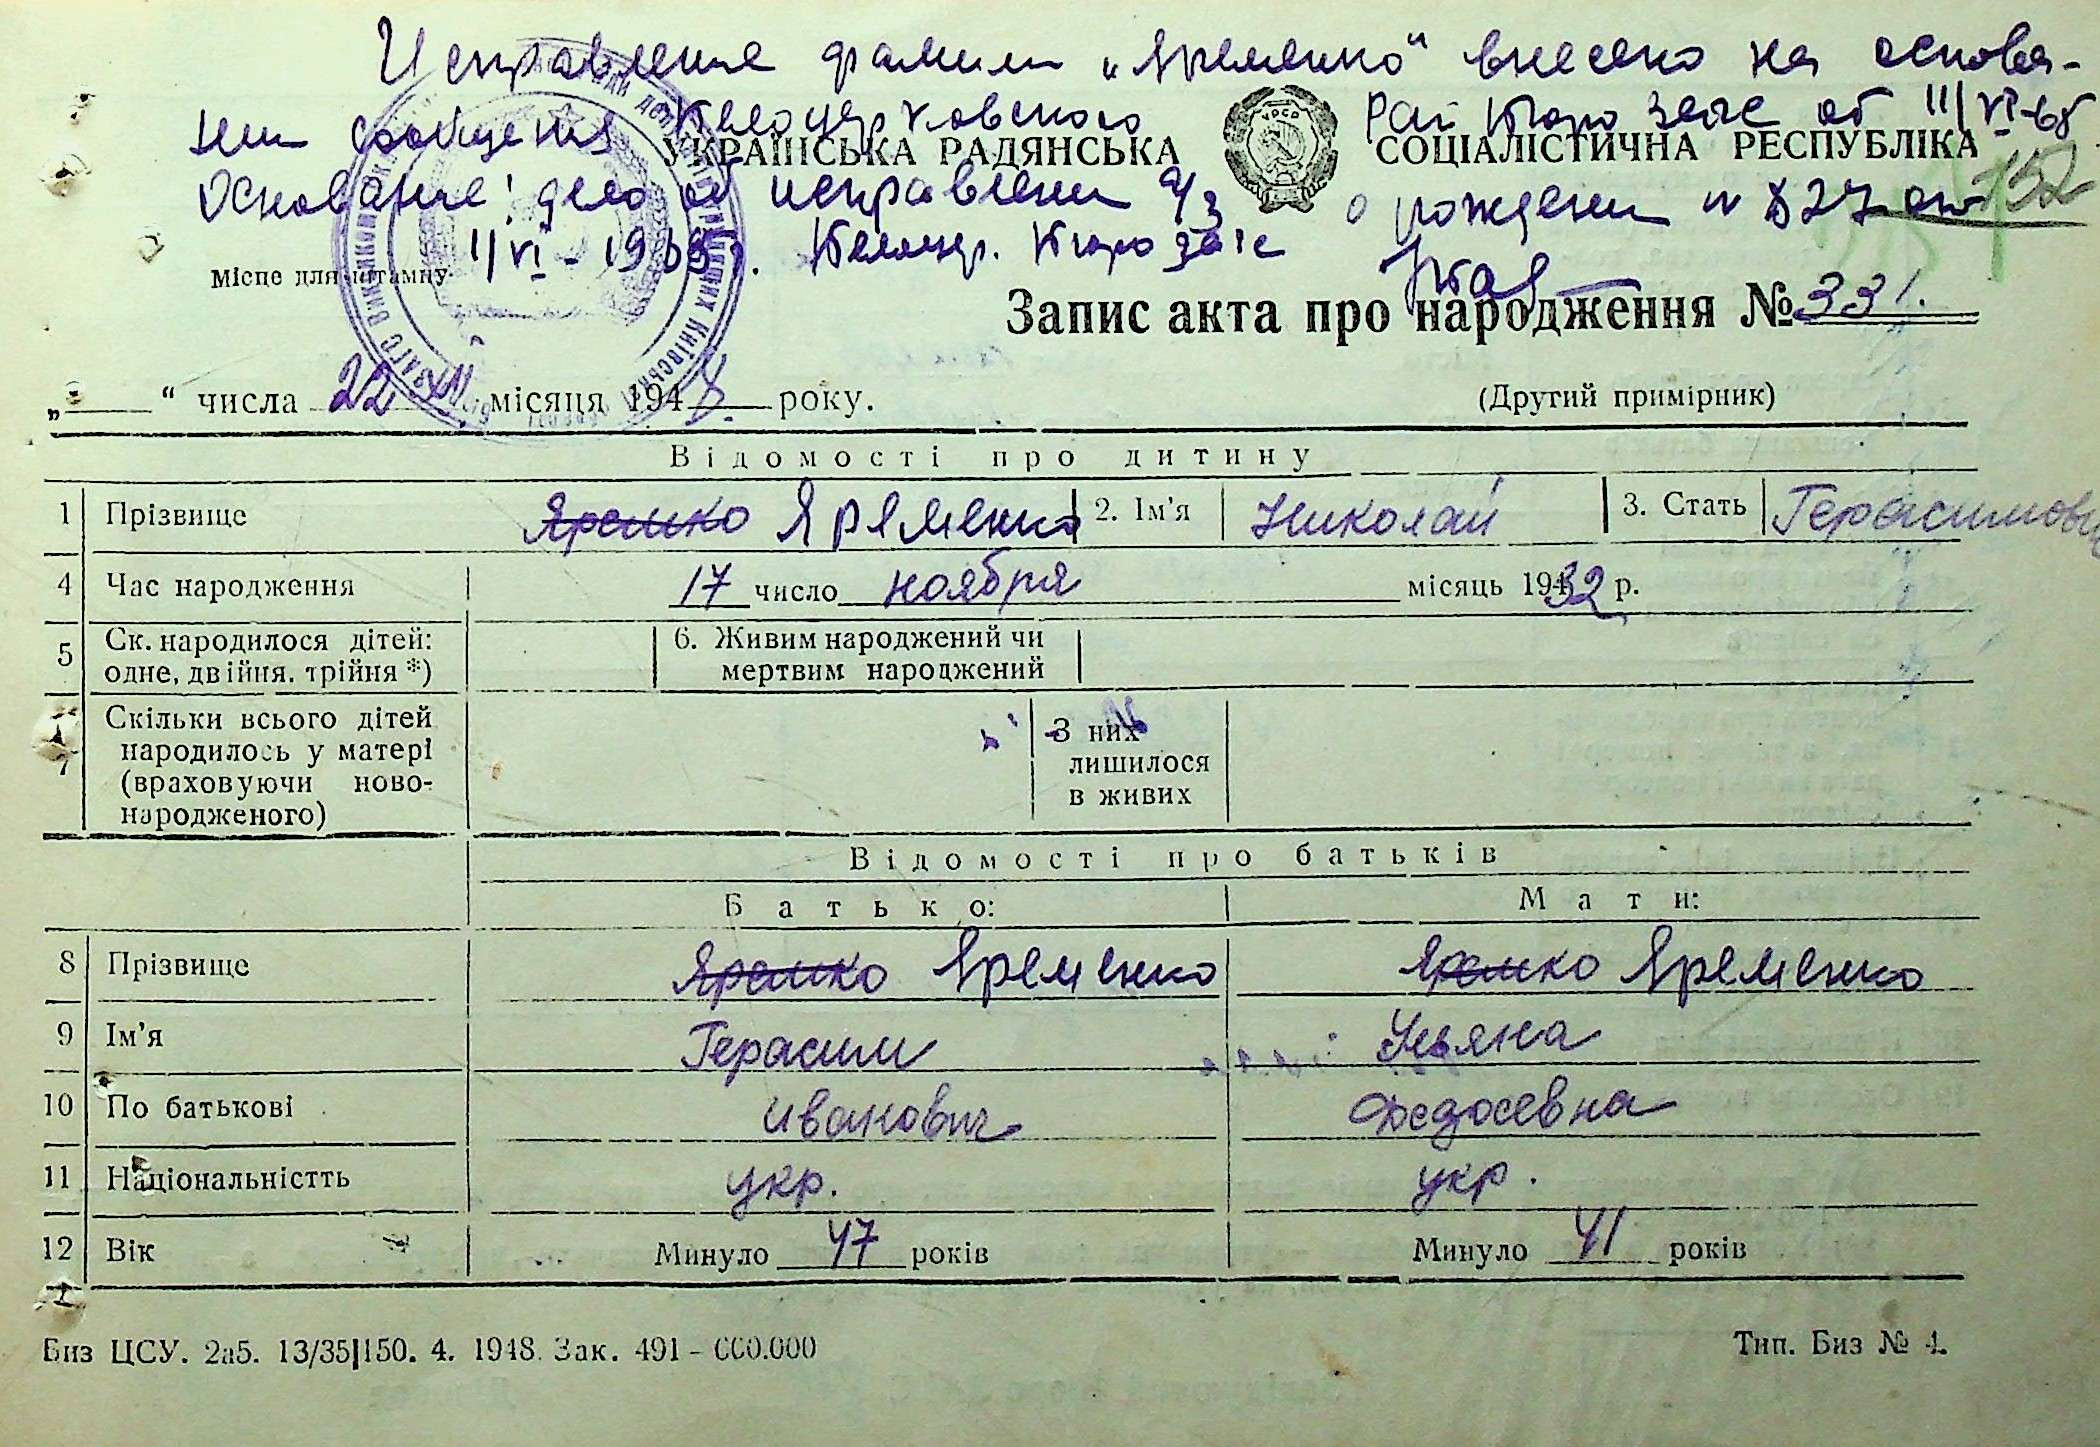 Исправление фамилии „Яременко“ внесено на основа-
нии сообщения Белоцерковского Рай бюро загс от 11/VI-65
УКРАЇНСЬКА РАДЯНСЬКА СОЦІАЛІСТИЧНА РЕСПУБЛІКА
Основание: дело об исправлении а/з о рождении № 827 от 152
11/VI - 1965г. Белоцер. бюро загс
Місце для штампу
Запис акта про народження № 331.
„ “ числа 22 XII місяця 1948 року. (Другий примірник)
Відомості про дитину
1 Прізвище Яремко Яременко 2. Ім’я Николай 3. Стать Герасимович
4 Час народження 17 число ноября місяць 1932 р.
5 Ск. народилося дітей: одне, двійня, трійня *) 6. Живим народжений чи мертвим народжений
7 Скільки всього дітей народилось у матері (враховуючи ново-народженого) З них лишилося в живих
Відомості про батьків
Батько: Мати:
8 Прізвище Яремко Яременко Яремко Яременко
9 Ім’я Герасим Ульяна
10 По батькові Иванович Федосевна
11 Національністть укр. укр.
12 Вік Минуло 47 років Минуло 41 років
Биз ЦСУ. 2а5. 13/35|150. 4. 1948. Зак. 491 - 600.000 Тип. Биз № 4.